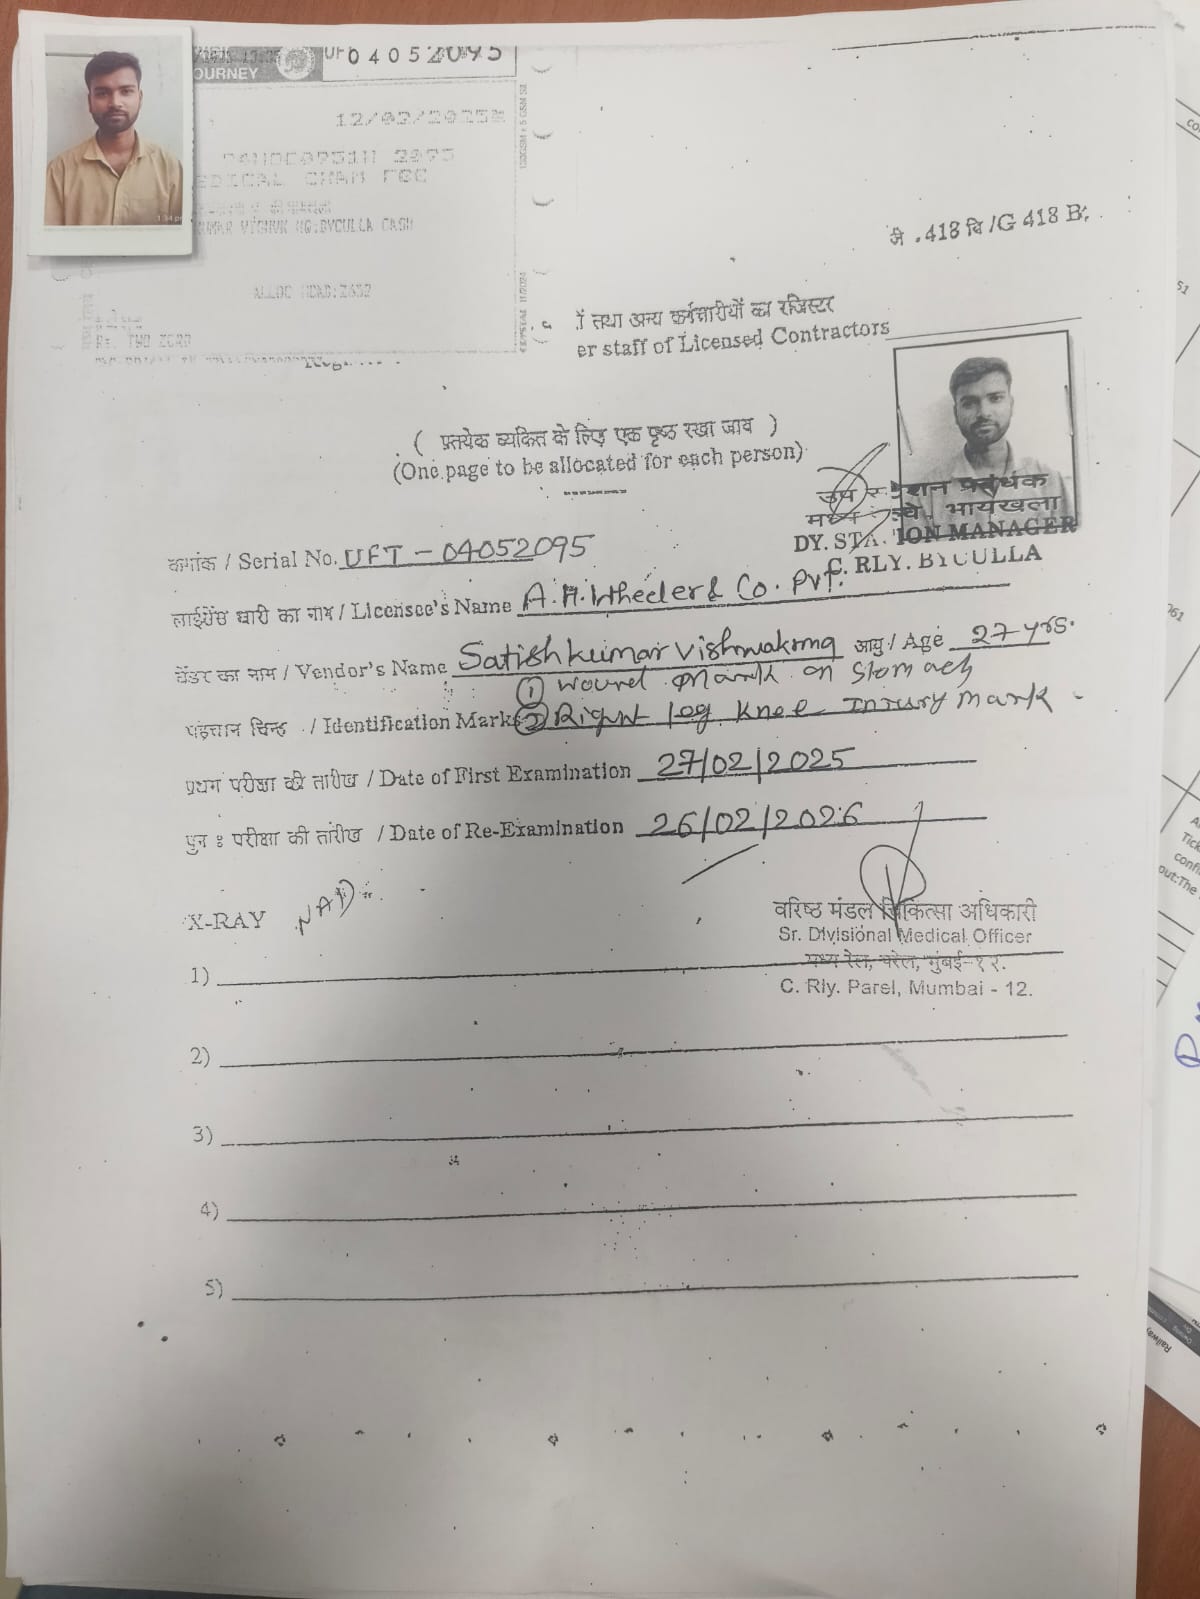 OURNEY
UF 04052095
12/03/2025
EDICAL CHAM FEC
KUMAR VISHVK HQ:BYCULLA CASH
ALLOC HEAD:
Rs. TWO ZERO
जी .418 बि /G 418 B.
तथा अन्य कर्मचारीयों का रजिस्टर
er staff of Licensed Contractors
( प्रत्येक व्यक्ति के लिए एक पृष्ठ रखा जाव )
(One page to be allocated for each person)
मध्य रेल्वे, भायखला
DY. STATION MANAGER
C. RLY. BYCULLA
क्रमांक / Serial No. UFT - 04052095
लाईसेंस धारी का नाम / Licensee's Name A.H. Wheeler & Co. Pvt.
वेंडर का नाम / Vendor's Name Satishkumar Vishwakrma आयु / Age 27 yrs.
① wound mark on stomach
पहचान चिन्ह / Identification Marks ② Right leg knee Injury mark
प्रथम परीक्षा की तारीख / Date of First Examination 27/02/2025
पुन : परीक्षा की तारीख / Date of Re-Examination 26/02/2026
X-RAY NAD
वरिष्ठ मंडल चिकित्सा अधिकारी
Sr. Divisional Medical Officer
मध्य रेल, परेल, मुंबई-१२.
C. Rly. Parel, Mumbai - 12.
1)
2)
3)
4)
5)